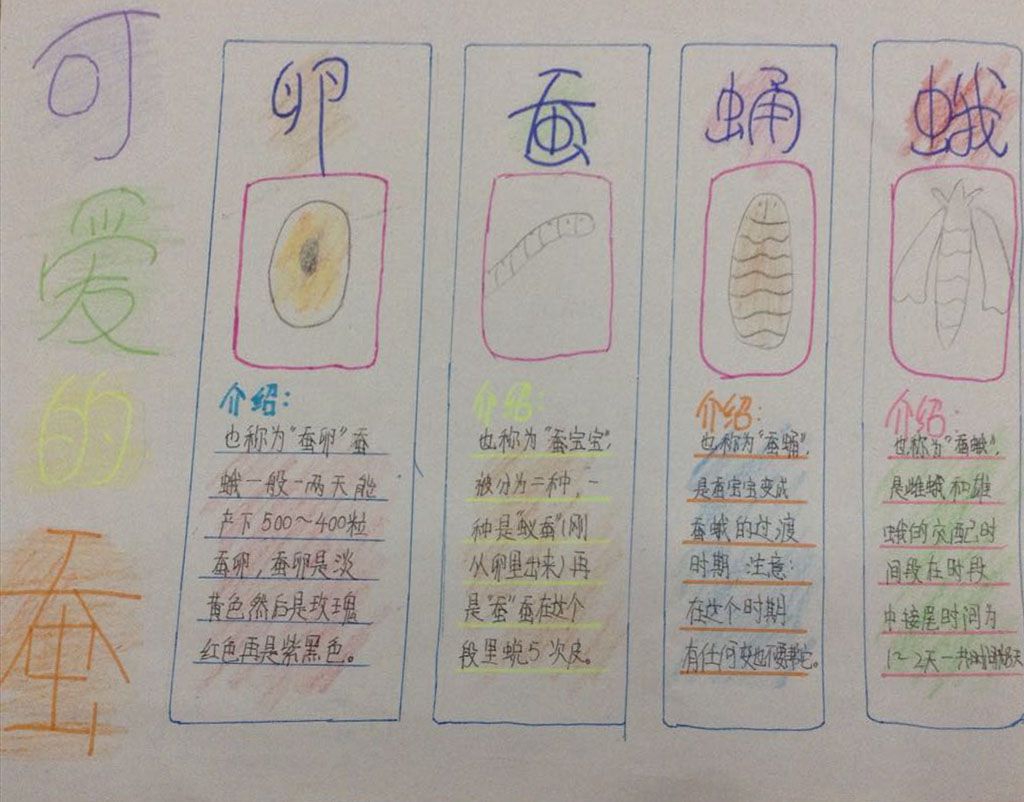 可爱的蚕
卵
介绍：
也称为“蚕卵”蚕
蛾一般一两天能
产下500～400粒
蚕卵，蚕卵是淡
黄色然后是玫瑰
红色再是紫黑色。
蚕
介绍：
也称为“蚕宝宝”，
被分为二种，一
种是“蚁蚕”（刚
从卵里出来）再
是“蚕”蚕在这个
段里蜕5次皮。
蛹
介绍：
也称为“蚕蛹”，
是蚕宝宝变成
蚕蛾的过渡
时期 注意：
在这个时期
有任何变也不要帮它。
蛾
介绍：
也称为“蚕蛾”，
是雌蛾和雄
蛾的交配时
间段在时段
中接尾时间为
1～2天一共时间